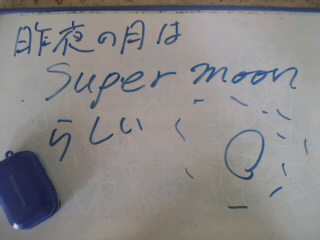 昨夜の月は
Super moon
らしい